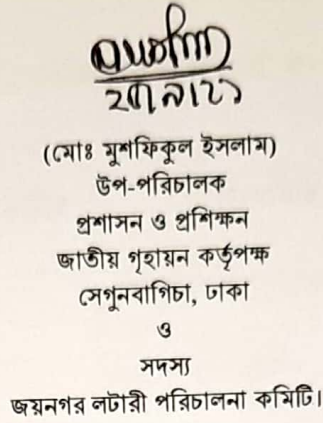 (মোঃ মুশফিকুল ইসলাম)
উপ-পরিচালক
প্রশাসন ও প্রশিক্ষন
জাতীয় গৃহায়ন কর্তৃপক্ষ
সেগুনবাগিচা, ঢাকা
ও
সদস্য
জয়নগর লটারী পরিচালনা কমিটি।